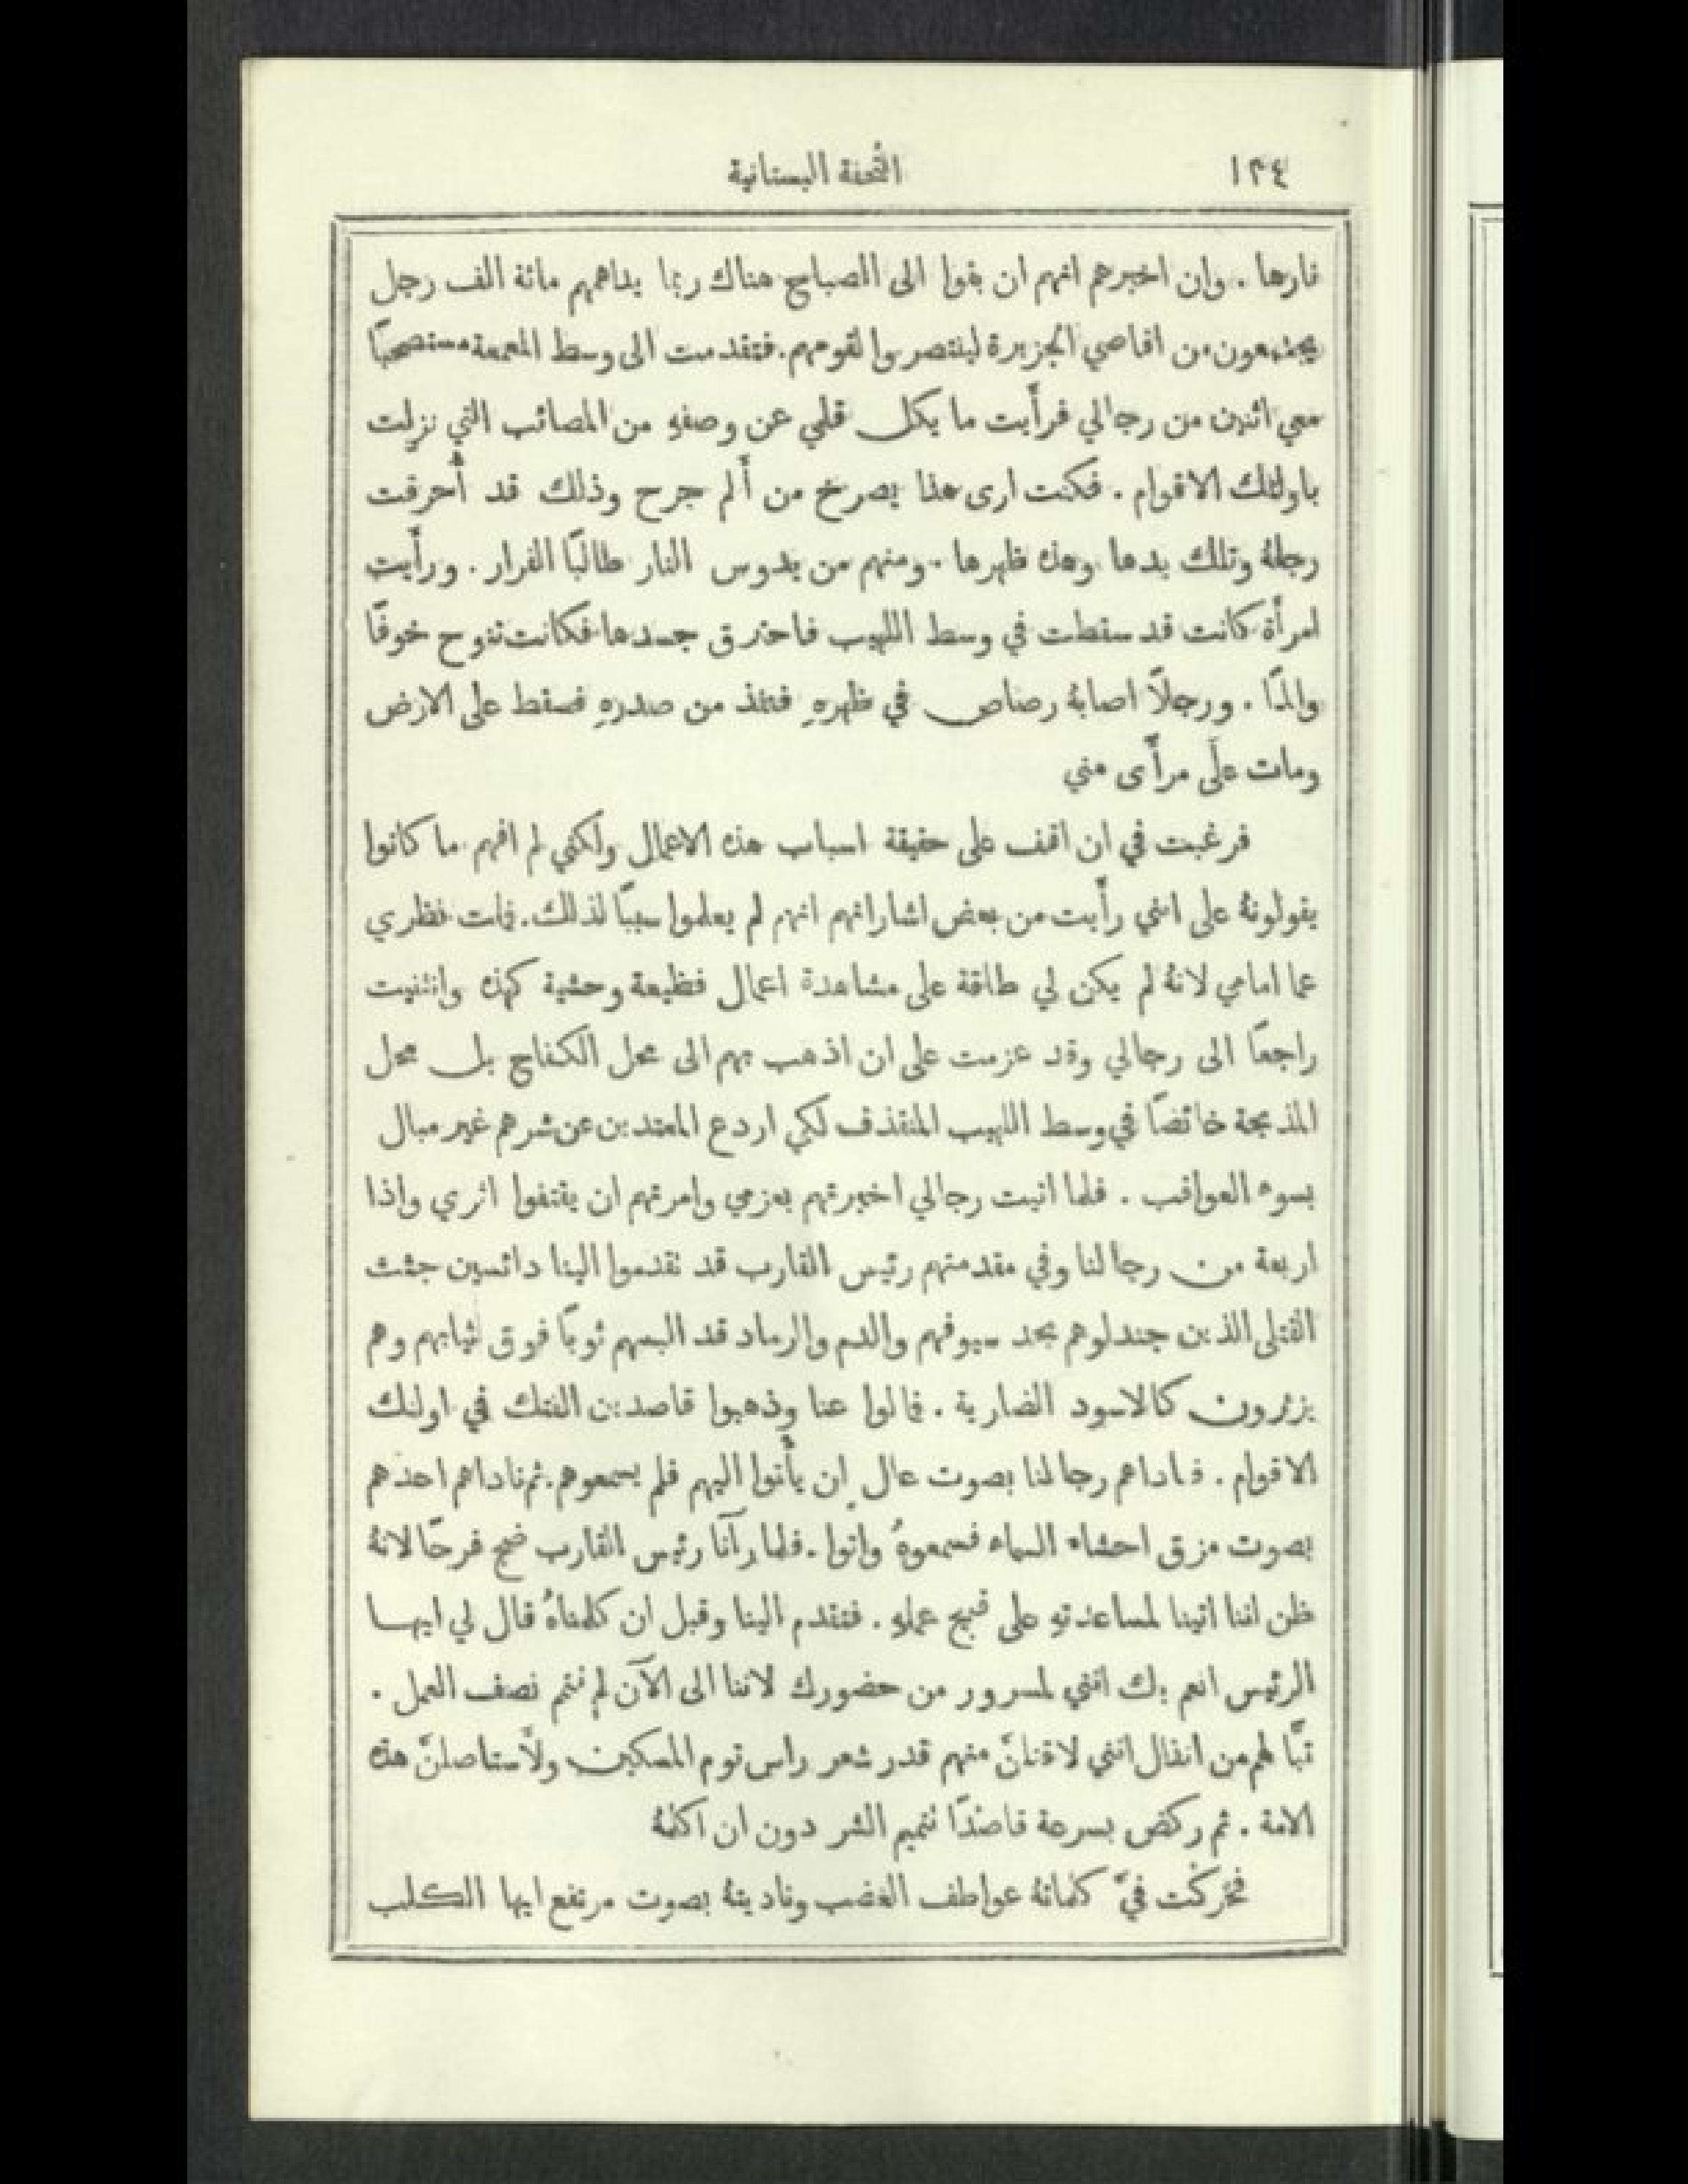 ١٣٤
التُّحفة البستانية
نارها . وان اخبرهم انهم ان بقوا الى الصباح هناك ربما يداهمهم مائة الف رجل
يجتمعون من اقاصي الجزيرة لينتصروا لقومهم . فتقدمت الى وسط المعمعة مستصحبًا
معي اثنين من رجالي فرأَيت ما يكل قلمي عن وصفهِ من المصائب التي نزلت
باولئك الاقوام . فكنت ارى هذا يصرخ من أَلم جرح وذلك قد أُحرقت
رجلهُ وتلك يدها وهذه ظهرها . ومنهم من يدوس النار طالبًا الفرار . ورأَيت
امرأَة كانت قد سقطت في وسط اللهيب فاحترق جسدها فكانت تنوح خوفًا
والمًا . ورجلًا اصابهُ رصاص في ظهرهِ فنفذ من صدرهِ فسقط على الارض
ومات علَى مرأَى مني
فرغبت في ان اقف على حقيقة اسباب هذه الاعمال ولكني لم افهم ما كانوا
يقولونهُ على انني رأَيت من بعض اشاراتهم انهم لم يعلموا سببًا لذلك . فملت نظري
عما امامي لانهُ لم يكن لي طاقة على مشاهدة اعمال فظيعة وحشية كهذه وانثنيت
راجعًا الى رجالي وقد عزمت على ان اذهب بهم الى محل الكفاح بل محل
المذبحة خائضًا في وسط اللهيب المنقذف لكي اردع المعتدين عن شرهم غير مبال
بسوء العواقب . فلما اتيت رجالي اخبرتهم بعزمي وامرتهم ان يقتفوا اثري واذا
اربعة من رجالنا وفي مقدمتهم رئيس القارب قد تقدموا الينا دائسين جثث
القتلى الذين جندلوهم بحد سيوفهم والدم والرماد قد البسهم ثوبًا فوق ثيابهم وهم
يزئرون كالاسود الضارية . فمالوا عنا وذهبوا قاصدين الفتك في اولئك
الاقوام . فناداهم رجالنا بصوت عال ان يأْتوا اليهم فلم يسمعوهم . ثم ناداهم احدهم
بصوت مزق احشاء السماء فسمعوهُ واتوا . فلما رآنا رئيس القارب ضج فرحًا لانهُ
ظن اننا اتينا لمساعدتهِ على قبيح عملهِ . فتقدم الينا وقبل ان كلمناهُ قال لي ايها
الرئيس انعم بك انني لمسرور من حضورك لاننا الى الآن لم نتم نصف العمل .
تبًّا لهم من انذال انني لاقتلنَّ منهم قدر شعر راس توم المسكين ولأَستاصلنَّ هذه
الامة . ثم ركض بسرعة قاصدًا تتميم الشر دون ان اكلمهُ
فحرَّكت فيَّ كلماتهُ عواطف الغضب وناديتهُ بصوت مرتفع ايها الكلب